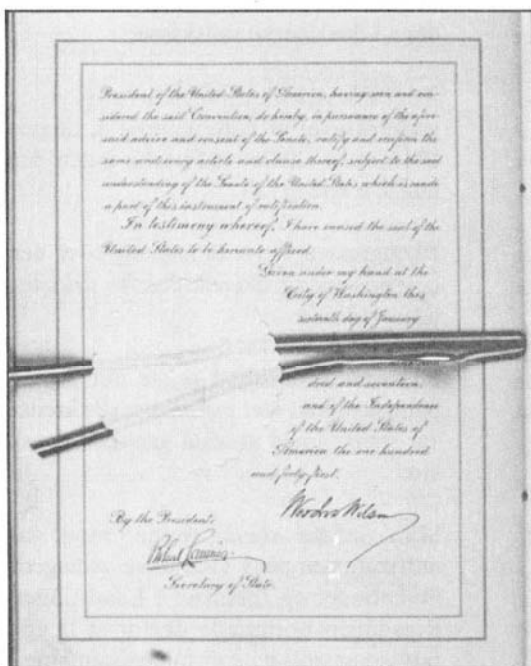 President of the United States of America, having seen and con-
sidered the said Convention, do hereby, in pursuance of the afore-
said advice and consent of the Senate, ratify and confirm the
same and every article and clause thereof, subject to the said
understanding of the Senate of the United States which is made
a part of this instrument of ratification.
In testimony whereof, I have caused the seal of the
United States to be hereunto affixed.
Given under my hand at the
City of Washington this
sixteenth day of January
dred and seventeen,
and of the Independence
of the United States of
America the one hundred
and forty-first.
Woodrow Wilson
By the President:
Robert Lansing
Secretary of State.